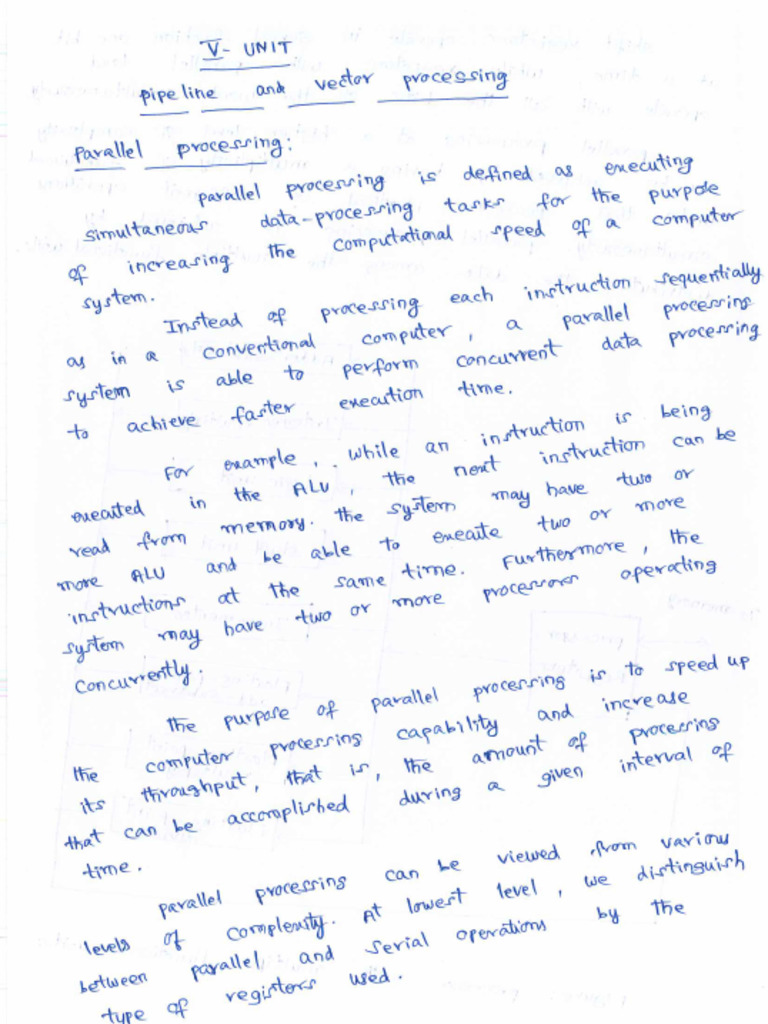 V- UNIT
pipeline and vector processing
Parallel processing:
parallel processing is defined as executing
simultaneous data-processing tasks for the purpose
of increasing the computational speed of a computer
system.
Instead of processing each instruction sequentially
as in a conventional computer, a parallel processing
system is able to perform concurrent data processing
to achieve faster execution time.
For example, while an instruction is being
executed in the ALU, the next instruction can be
read from memory. the system may have two or
more ALU and be able to execute two or more
instructions at the same time. Furthermore, the
system may have two or more processors operating
concurrently.
The purpose of parallel processing is to speed up
the computer processing capability and increase
its throughput, that is, the amount of processing
that can be accomplished during a given interval of
time.
parallel processing can be viewed from various
levels of complexity. At lowest level, we distinguish
between parallel and serial operations by the
type of registers used.